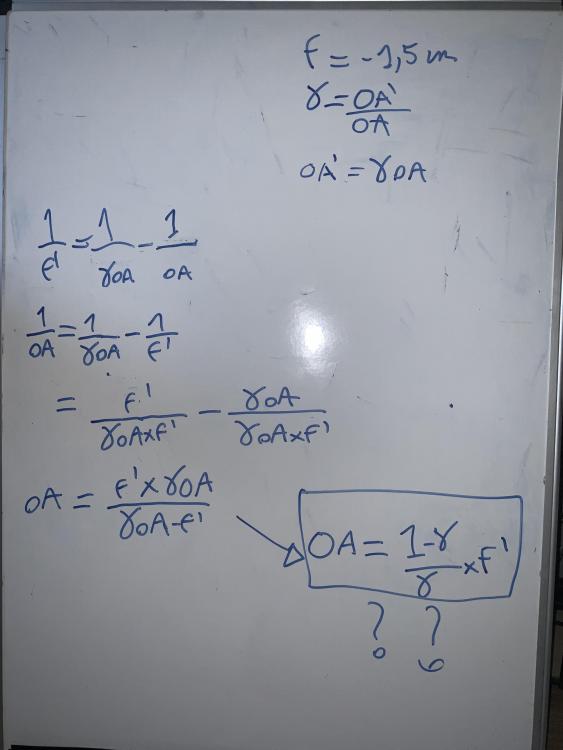 f = -1,5 m
γ = OA'/OA
OA' = γOA
1/f' = 1/γOA - 1/OA
1/OA = 1/γOA - 1/f'
= f'/γOA×f' - γOA/γOA×f'
OA = f'×γOA/γOA-f'
OA = 1-γ/γ ×f'
? ?